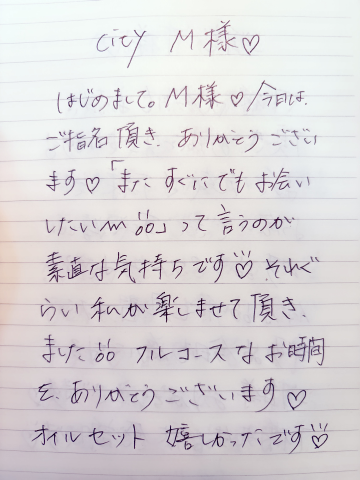 city M様♡
はじめまして。M様♡今日は、
ご指名頂き、ありがとうござい
ます♡「またすぐにでもお会い
したいm」って言うのが
素直な気持ちです♡それぐ
らい私が楽しませて頂き、
ました フルコースなお時間
を、ありがとうございます♡
オイルセット 嬉しかったです♡